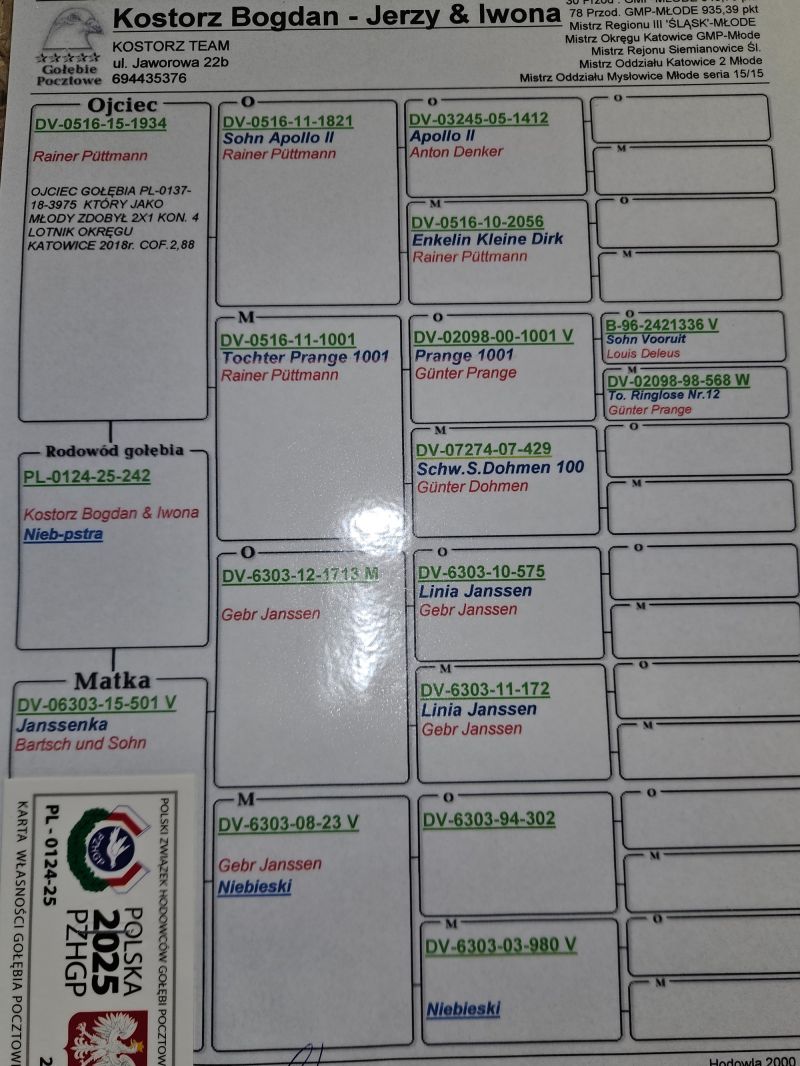 Kostorz Bogdan - Jerzy & Iwona
KOSTORZ TEAM
ul. Jaworowa 22b
694435376
Gołębie
Pocztowe
78 Przod. GMP-MŁODE 935,39 pkt
Mistrz Regionu III 'ŚLĄSK'-MŁODE
Mistrz Okręgu Katowice GMP-Młode
Mistrz Rejonu Siemianowice Śl.
Mistrz Oddziału Katowice 2 Młode
Mistrz Oddziału Mysłowice Młode seria 15/15
Ojciec
DV-0516-15-1934
Rainer Püttmann
OJCIEC GOŁĘBIA PL-0137-
18-3975 KTÓRY JAKO
MŁODY ZDOBYŁ 2X1 KON. 4
LOTNIK OKRĘGU
KATOWICE 2018r. COF.2,88
Rodowód gołębia
PL-0124-25-242
Kostorz Bogdan & Iwona
Nieb-pstra
Matka
DV-06303-15-501 V
Janssenka
Bartsch und Sohn
O
DV-0516-11-1821
Sohn Apollo II
Rainer Püttmann
M
DV-0516-11-1001
Tochter Prange 1001
Rainer Püttmann
O
DV-6303-12-1713 M
Gebr Janssen
M
DV-6303-08-23 V
Gebr Janssen
Niebieski
O
DV-03245-05-1412
Apollo II
Anton Denker
M
DV-0516-10-2056
Enkelin Kleine Dirk
Rainer Püttmann
O
DV-02098-00-1001 V
Prange 1001
Günter Prange
M
DV-07274-07-429
Schw.S.Dohmen 100
Günter Dohmen
O
DV-6303-10-575
Linia Janssen
Gebr Janssen
M
DV-6303-11-172
Linia Janssen
Gebr Janssen
O
DV-6303-94-302
M
DV-6303-03-980 V
Niebieski
O
M
O
M
O
B-96-2421336 V
Sohn Vooruit
Louis Deleus
M
DV-02098-98-568 W
To. Ringlose Nr.12
Günter Prange
O
M
O
M
O
M
O
M
O
M
Hodowla 2000
POLSKI ZWIĄZEK HODOWCÓW GOŁĘBI POCZTOWYCH
POLSKA
2025
PZHGP
PZHGP
PL - 0124-25
KARTA WŁASNOŚCI GOŁĘBIA POCZTOWEGO